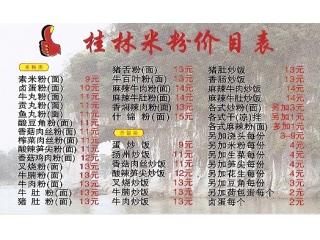 桂林米粉价目表
素米粉(面) 9元
卤蛋粉(面) 10元
牛丸粉(面) 11元
贡丸粉(面) 11元
鱼丸粉(面) 11元
酸豆角粉(面) 11元
香菇肉丝粉(面) 12元
榨菜肉丝粉(面) 12元
酸辣笋尖粉(面) 12元
香菇鸡肉粉(面) 12元
叉烧粉(面) 13元
牛腩粉(面) 13元
牛肉粉(面) 13元
牛肚粉(面) 13元
猪肚粉(面) 13元
猪舌粉(面) 13元
牛百叶粉(面) 13元
麻辣牛肉粉(面) 14元
麻辣牛肚粉(面) 14元
香焖辣肉粉(面) 13元
什锦粉(面) 15元
蛋炒饭 9元
扬州炒饭 11元
香菇鸡肉炒饭 12元
酸辣笋尖炒饭 12元
叉烧炒饭 13元
牛腩炒饭 13元
牛肉炒饭 13元
牛肚炒饭 13元
猪肚炒饭 13元
香肠炒饭 13元
麻辣牛肉炒饭 14元
麻辣牛肚炒饭 14元
各式炒粉(面) 另加3元
各式干(凉)拌 另加1元
各式麻辣粉(面) 另加1元
另加浇头每份
另加米粉每份 4元
另加面每份 4元
另加笋尖每份 4元
另加花生每份 2元
另加豆角每份 3元
另加荷包蛋每个 2元
卤蛋每个 2元